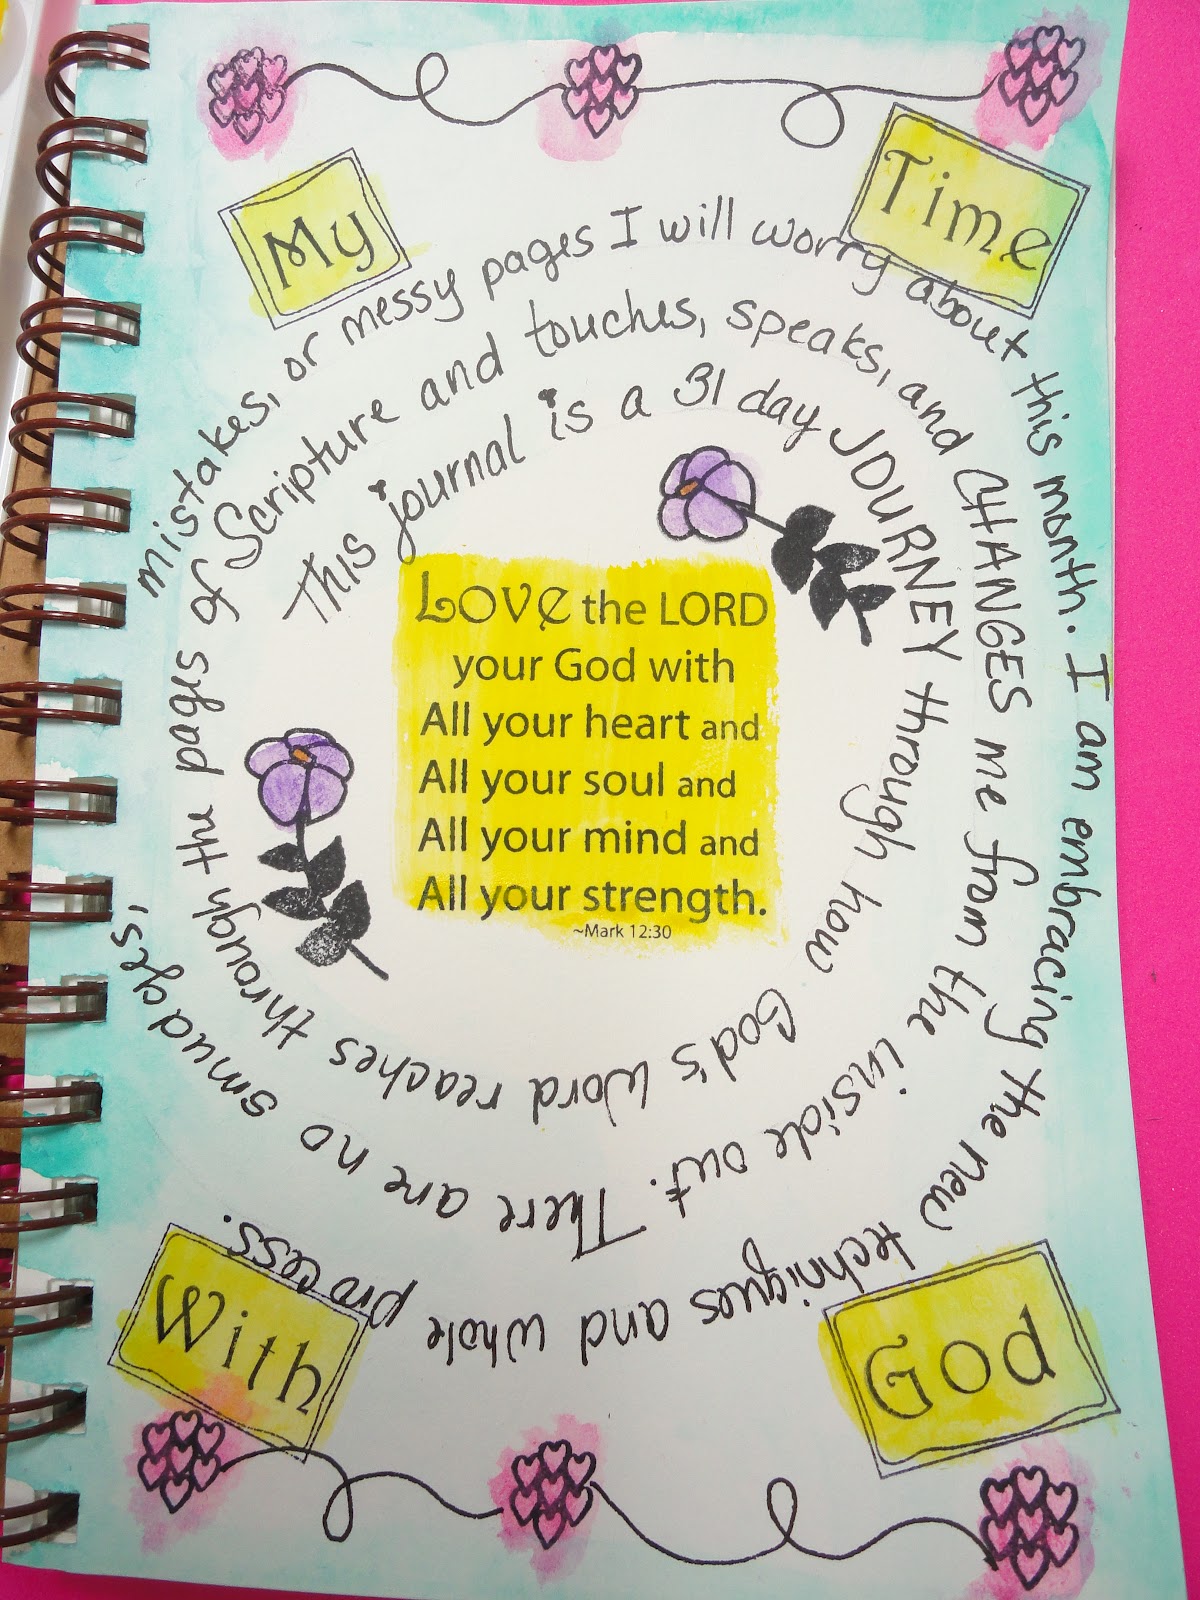 My
Time
LOVE the LORD
your God with
All your heart and
All your soul and
All your mind and
All your strength.
~Mark 12:30
This journal is a 31 day JOURNEY through how God's Word reaches through the pages of Scripture and touches, speaks, and CHANGES me from the inside out. There are no smudges, mistakes, or messy pages I will worry about this month. I am embracing the new techniques and whole process.
With
God